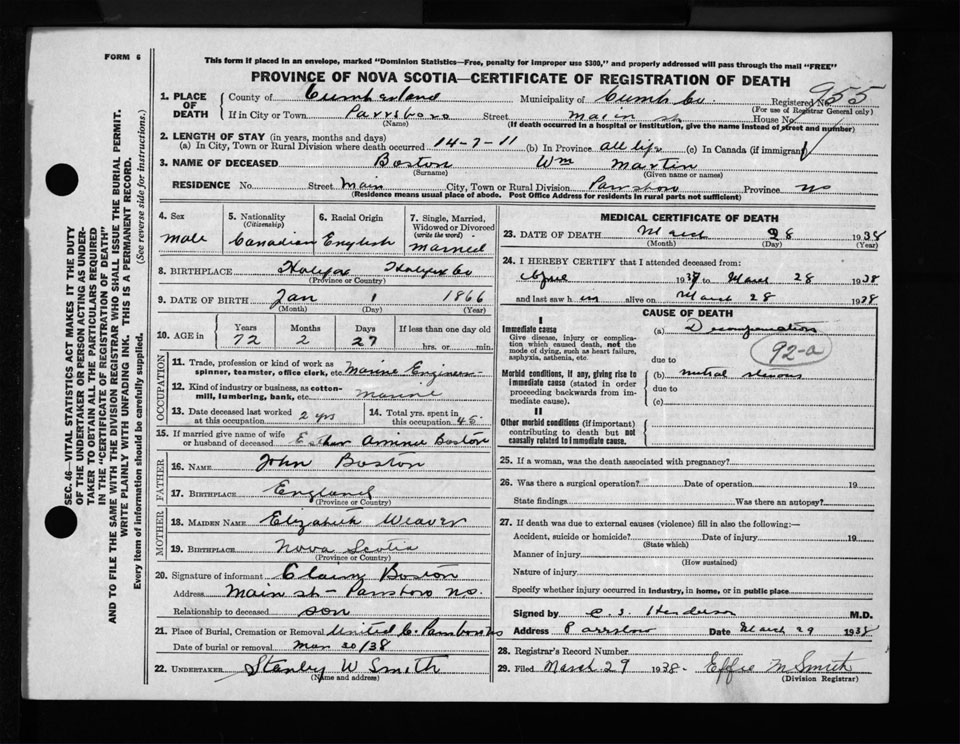 FORM 6
This form if placed in an envelope, marked "Dominion Statistics—Free, penalty for improper use $300," and properly addressed will pass through the mail "FREE"
PROVINCE OF NOVA SCOTIA—CERTIFICATE OF REGISTRATION OF DEATH
955
1. PLACE OF DEATH County of Cumberland Municipality of Cumb Co. Registered No.
(For use of Registrar General only)
If in City or Town Parrsboro Street Main St House No.
(Name) (If death occurred in a hospital or institution, give the name instead of street and number)
2. LENGTH OF STAY (in years, months and days)
(a) In City, Town or Rural Division where death occurred 14-7-11 (b) In Province all life (c) In Canada (if immigrant)
3. NAME OF DECEASED Boston Wm Martin
(Surname) (Given name or names)
RESIDENCE No. Street Main City, Town or Rural Division Parrsboro Province NS
(Residence means usual place of abode. Post Office Address for residents in rural parts not sufficient)
4. Sex
Male
5. Nationality
(Citizenship)
Canadian
6. Racial Origin
English
7. Single, Married, Widowed or Divorced
(write the word)
Married
8. BIRTHPLACE Halifax Halifax Co
(Province or Country)
9. DATE OF BIRTH Jan 1 1866
(Month) (Day) (Year)
10. AGE in Years Months Days If less than one day old
72 2 27 hrs. or min.
OCCUPATION
11. Trade, profession or kind of work as spinner, teamster, office clerk, etc. Marine Engineer
12. Kind of industry or business, as cotton-mill, lumbering, bank, etc. Marine
13. Date deceased last worked at this occupation 2 yrs
14. Total yrs. spent in this occupation 45
15. If married give name of wife or husband of deceased Esther Boston
FATHER
16. NAME John Boston
17. BIRTHPLACE England
(Province or Country)
MOTHER
18. MAIDEN NAME Elizabeth Weaver
19. BIRTHPLACE Nova Scotia
(Province or Country)
20. Signature of informant Boston
Address Main St - Parrsboro NS.
Relationship to deceased son
21. Place of Burial, Cremation or Removal United C. Parrsboro NS
Date of burial or removal Mar 30/38
22. UNDERTAKER Stanley W Smith
(Name and address)
MEDICAL CERTIFICATE OF DEATH
23. DATE OF DEATH March 28 1938
(Month) (Day) (Year)
24. I HEREBY CERTIFY that I attended deceased from:
1937 to March 28 1938
and last saw him alive on March 28 1938
CAUSE OF DEATH
I
Immediate cause (a) Decompensation
Give disease, injury or complication which caused death, not the mode of dying, such as heart failure, asphyxia, asthenia, etc.
92-a
due to
Morbid conditions, if any, giving rise to immediate cause (stated in order proceeding backwards from immediate cause). (b) mitral stenosis
due to
(c)
II
Other morbid conditions (if important) contributing to death but not causally related to immediate cause.
25. If a woman, was the death associated with pregnancy?
26. Was there a surgical operation? Date of operation 19
State findings Was there an autopsy?
27. If death was due to external causes (violence) fill in also the following:—
Accident, suicide or homicide? Date of injury 19
(State which)
Manner of injury
(How sustained)
Nature of injury
Specify whether injury occurred in industry, in home, or in public place
Signed by Henderson M.D.
Address Parrsboro Date March 29 1938
28. Registrar's Record Number
29. Filed March 29 1938 Effie M Smith
(Division Registrar)
SEC. 46—VITAL STATISTICS ACT MAKES IT THE DUTY
OF THE UNDERTAKER OR PERSON ACTING AS UNDER-
TAKER TO OBTAIN ALL THE PARTICULARS REQUIRED
IN THE "CERTIFICATE OF REGISTRATION OF DEATH"
AND TO FILE THE SAME WITH THE DIVISION REGISTRAR WHO SHALL ISSUE THE BURIAL PERMIT.
WRITE PLAINLY WITH UNFADING INK. THIS IS A PERMANENT RECORD.
Every item of information should be carefully supplied. (See reverse side for instructions.)